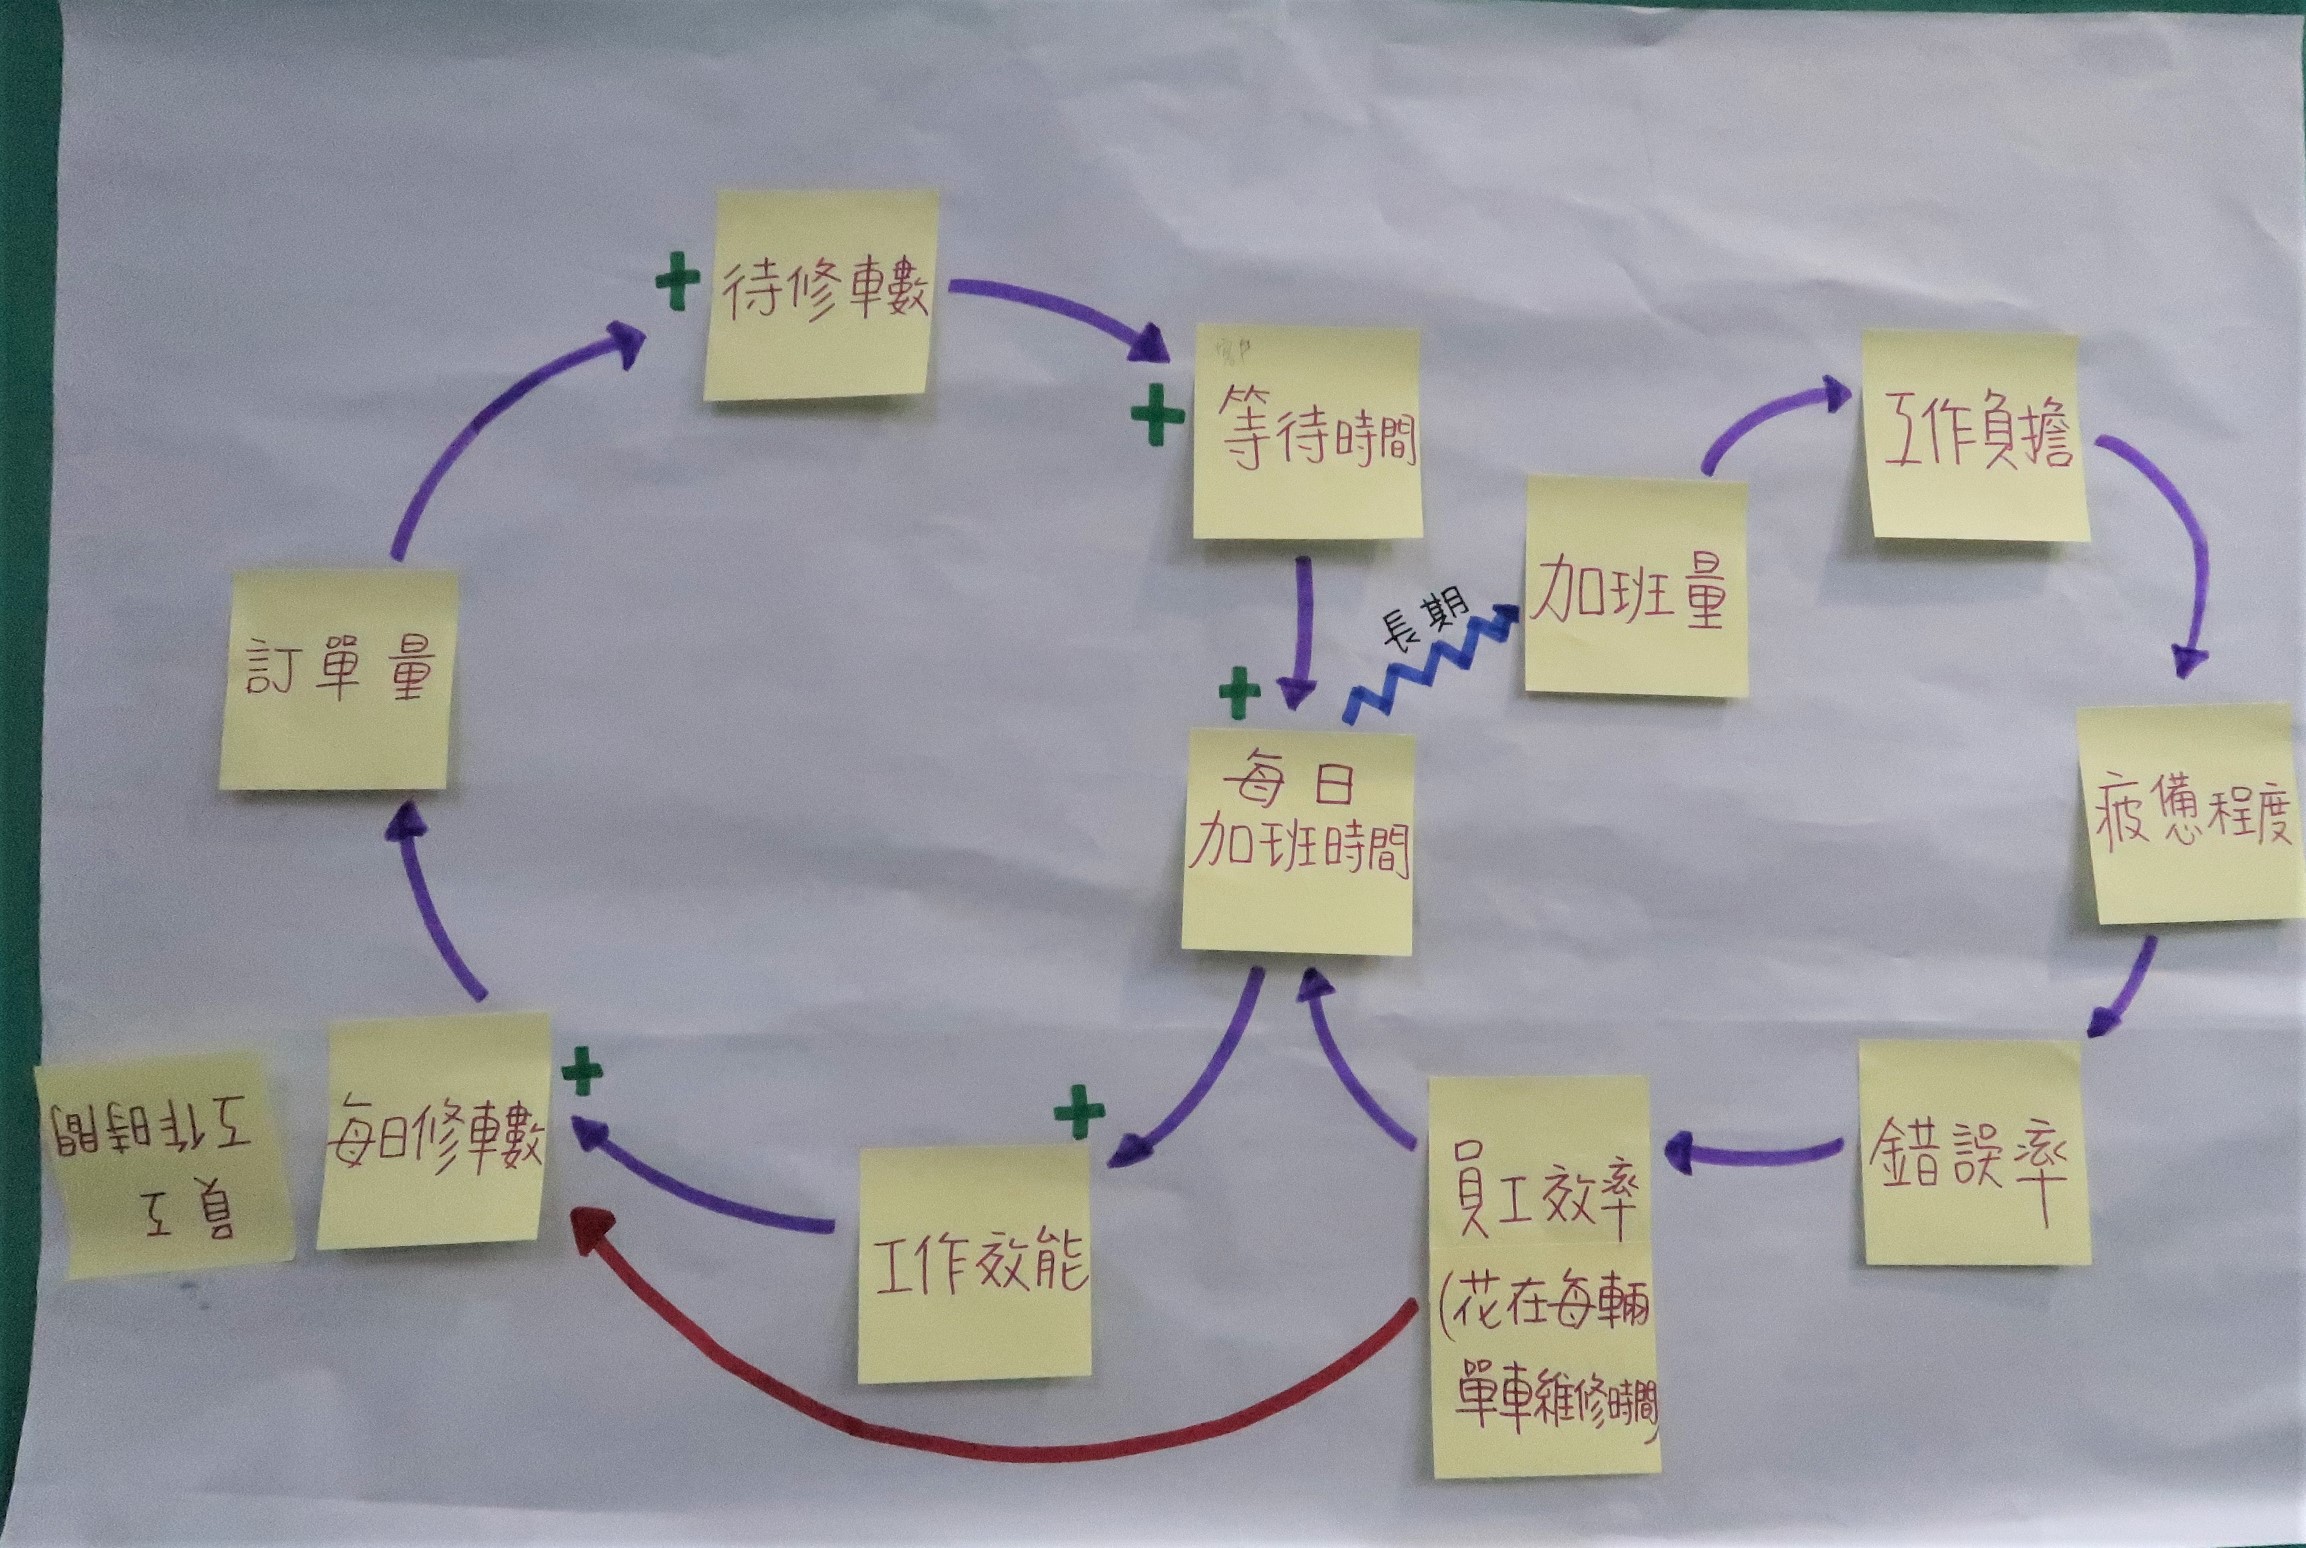 +
待修車數
+
客戶
等待時間
工作負擔
加班量
長期
訂單量
+
每日
加班時間
疲憊程度
+
每日修車數
員工
工作時間
+
工作效能
員工效率
(花在每輛
單車維修時間)
錯誤率